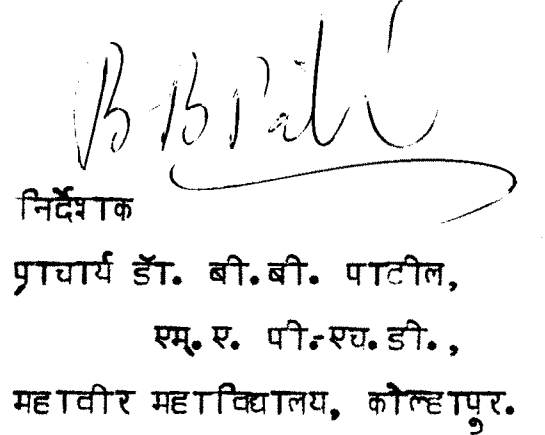 B.B Patil
निर्देशक
प्राचार्य डॉ. बी.बी. पाटील,
एम्. ए. पी.-एच. डी.,
महावीर महाविद्यालय, कोल्हापुर.